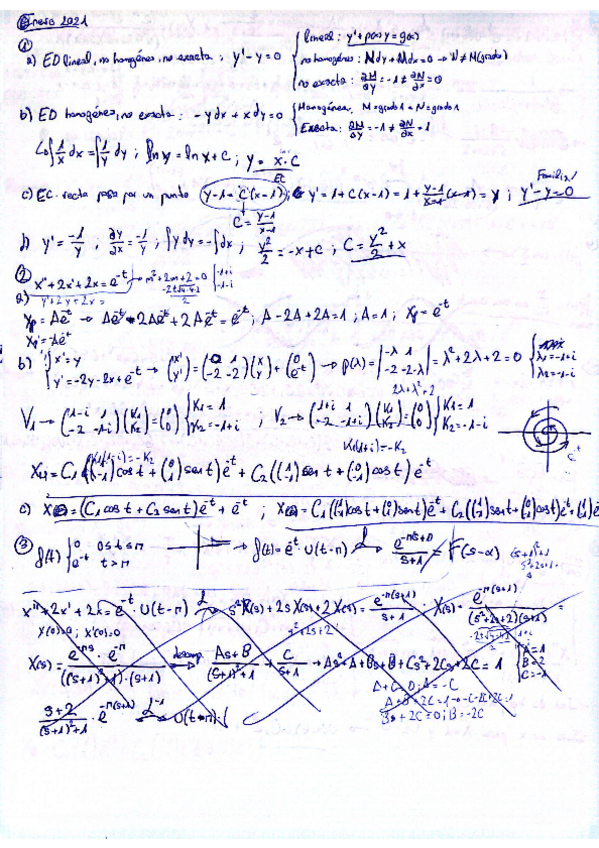 Enero 2021
①
a) ED lineal, no homogénea, no exacta ; y'-y=0 { lineal: y'+p(x)y=g(x)
no homogénea: Mdy+Ndx=0 → N≠M(grado)
no exacta: ∂M/∂y=-1≠∂N/∂x=0
b) ED homogénea, no exacta: -ydx+xdy=0 { Homogénea, M=grado1=N=grado1
Exacta: ∂M/∂y=-1≠∂N/∂x=1
↳ ∫1/x dx=∫1/y dy ; ln y=ln x+C ; y=x·C
EC
c) EC. recta pasa por un punto (y-1=C(x-1)) ; y'=1+C(x-1)=1+(y-1)/(x-1)(x-1)=y ; y'-y=0
Familia
C=(y-1)/(x-1)
d) y'=-1/y ; ∂y/∂x=-1/y ; ∫ydy=-∫dx ; y²/2=-x+C ; C=y²/2+x
② x''+2x'+2x=e^-t → m²+2m+2=0 { -1+i
-1-i
a)
Xp=Ae^-t → Ae^-t-2Ae^-t+2Ae^-t=e^-t ; A-2A+2A=1 ; A=1 ; Xp=e^-t
Xp'=-Ae^-t
b) { x'=y
y'=-2y-2x+e^-t → (x' y')=(0 1 -2 -2)(x y)+(0 e^-t) → p(λ)=|-λ 1 -2 -2-λ|=λ²+2λ+2=0 { λ1=-1+i
λ2=-1-i
2λ+λ²+2
V1→(1-i 1 -2 -1-i)(K1 K2)=(0 0) { K1=1 K2=-1+i ; V2→(1+i 1 -2 -1+i)(K1 K2)=(0 0) { K1=1 K2=-1-i
K1(1-i)=-K2
K1(1+i)=-K2
XH=C1((1 -1)cos t+(0 1)sen t)e^-t+C2((1 -1)sen t+(0 -1)cos t)e^-t
c) X=(C1 cos t+C2 sen t)e^-t+e^-t ; X=C1((1 -1)cos t+(0 1)sen t)e^-t+C2((1 -1)sen t+(0 1)cos t)e^-t+(1 -1)e^-t
③ f(t) { 0 0≤t≤π
e^-t t>π → f(t)=e^-t·U(t-π) → e^-πs+π/s+1=F(s-α)
x''+2x'+2x=e^-t·U(t-π) → s²X(s)+2sX(s)+2X(s)=e^-π(s+1)/s+1 · X(s)=e^-π(s+1)/(s²+2s+2)(s+1)=
x(0)=0 ; x'(0)=0
s²+2s+2
X(s)=e^-πs·e^-π/((s+1)²+1)·(s+1) → descomp. As+B/(s+1)²+1+C/s+1 → As²+A+Bs+B+Cs²+2Cs+2C=1 { A=1
B=2
C=-1
A+C=0 ; A=-C
A+B+2C=1
Bs+2C=0 ; B=-2C
s+2/(s+1)²+1·e^-π(s+1) → U(t-π)·(